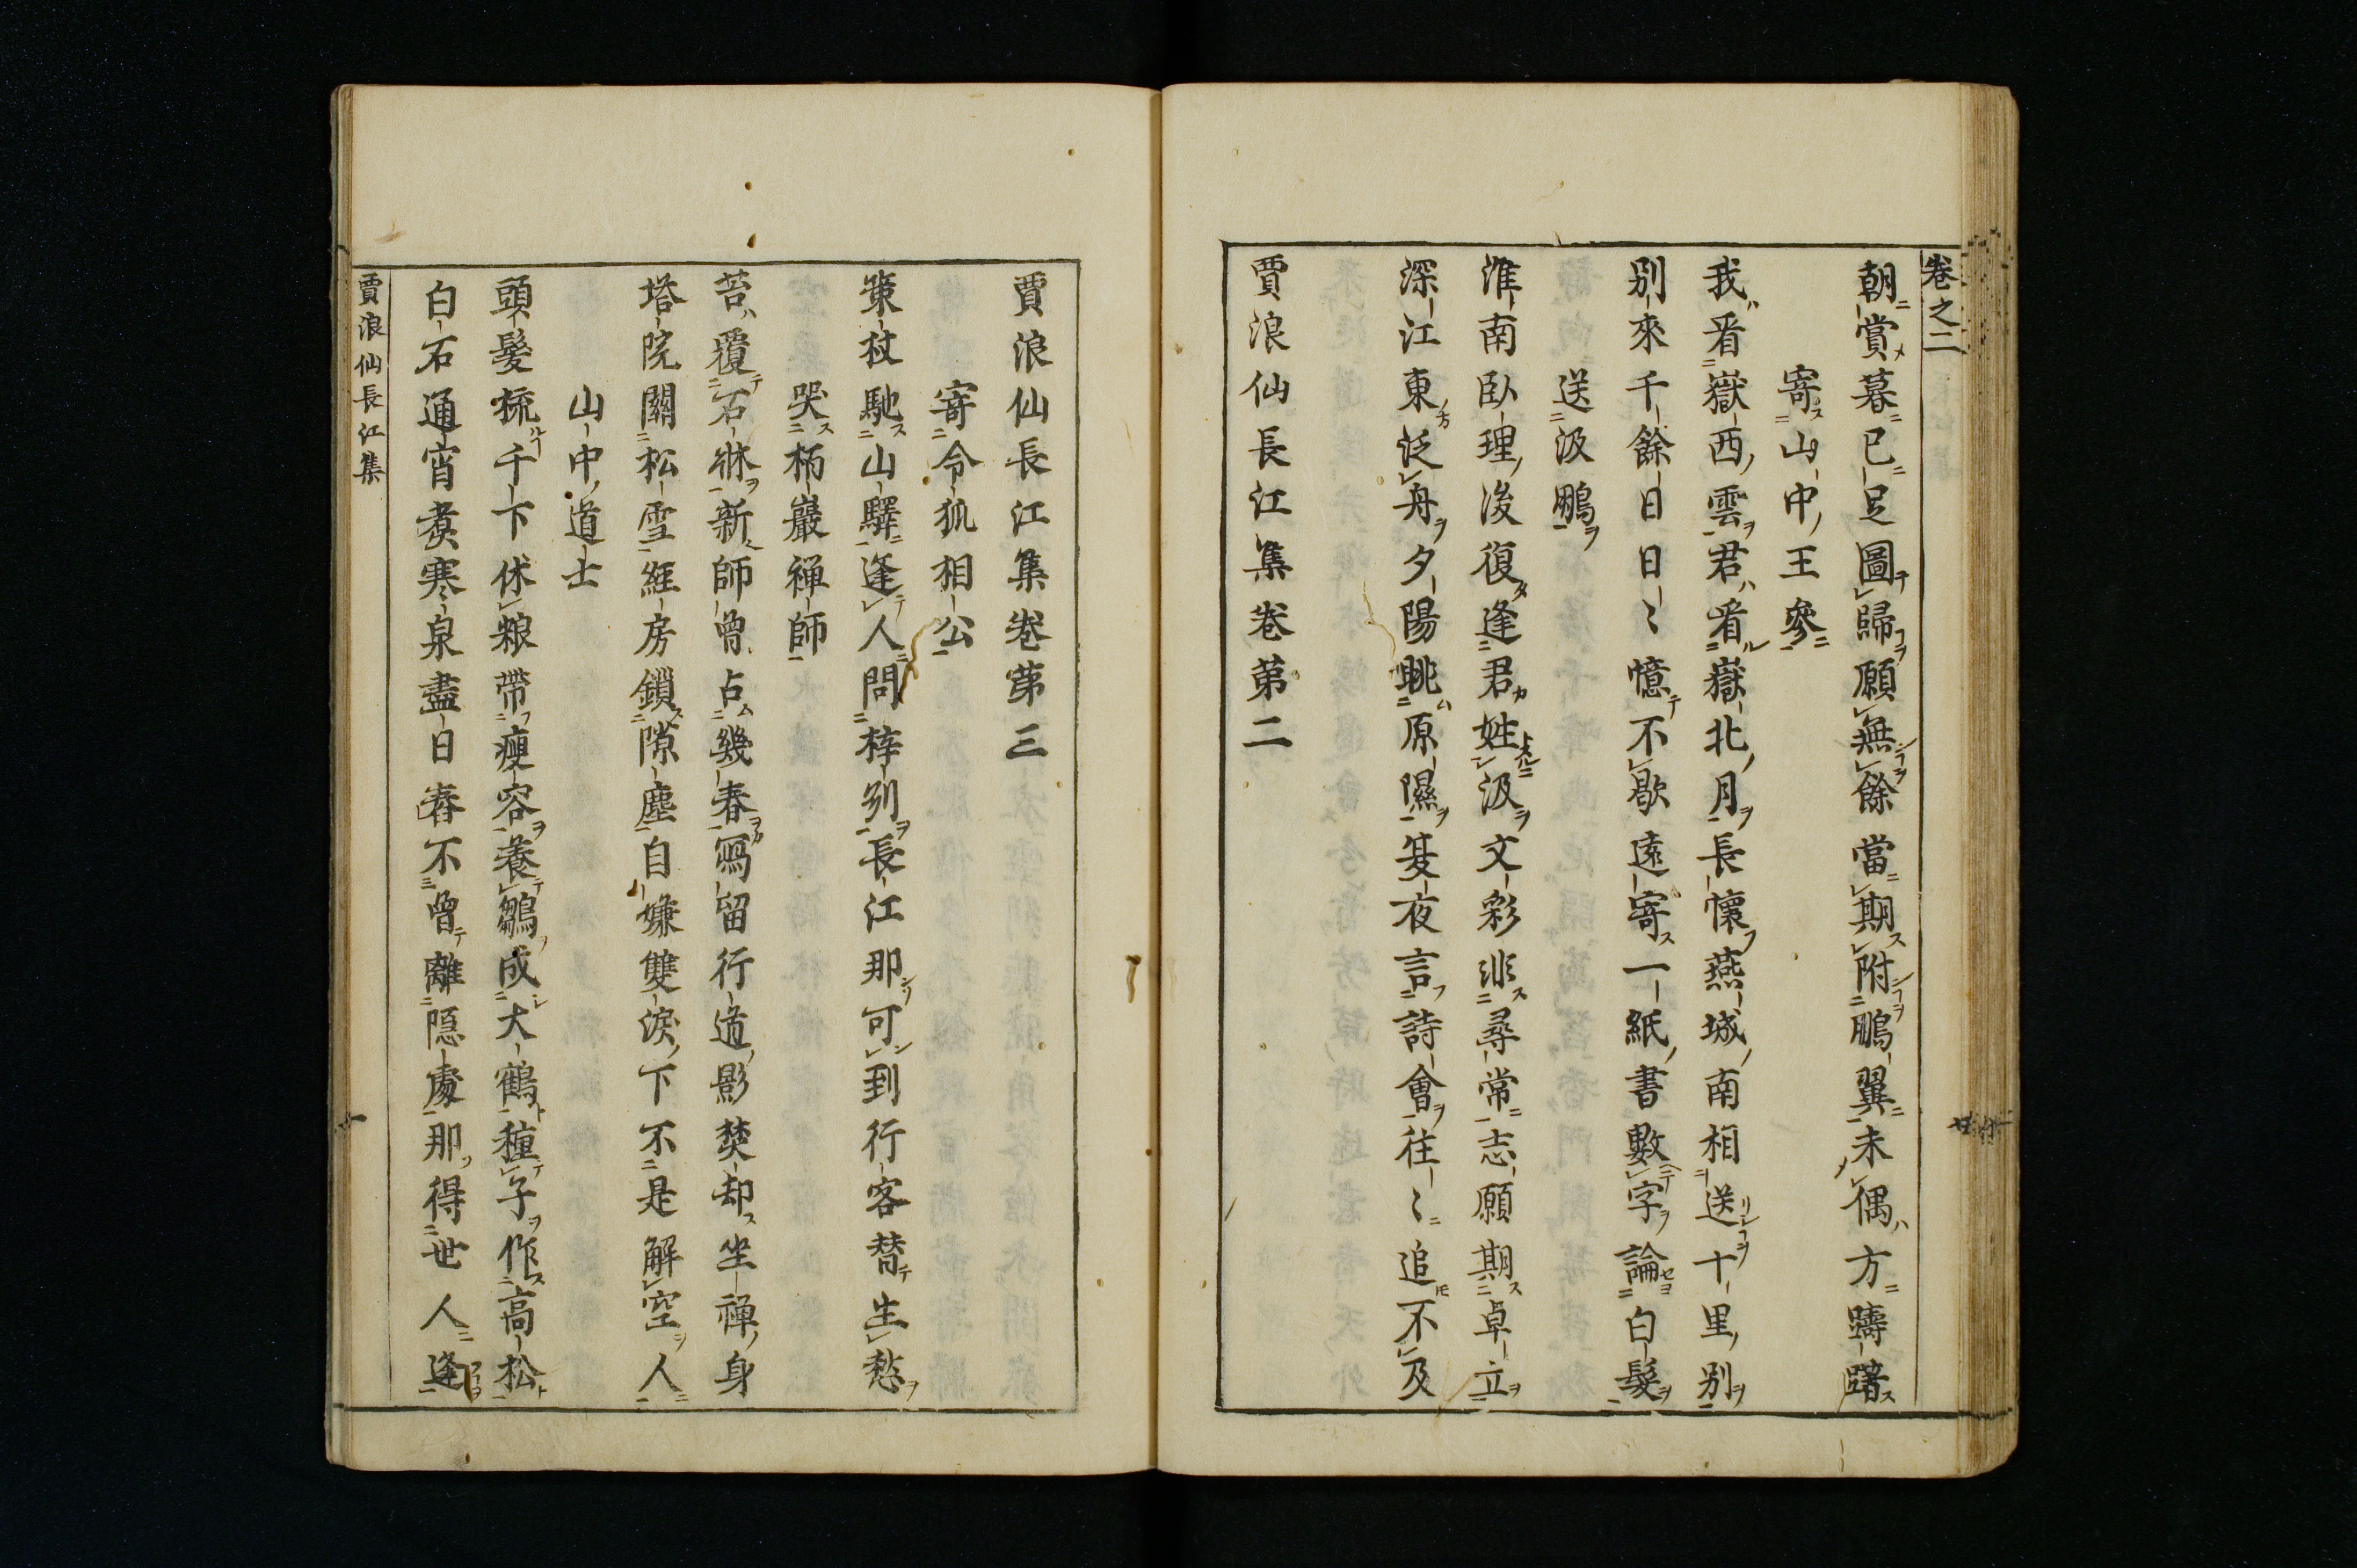 卷之二
朝賞暮已足圖歸願無餘當期附鵬翼未偶方躊躇
寄山中王參
我看嶽西雲君看嶽北月長懷燕城南相送十里別
別來千餘日日〻憶不歇遠寄一紙書數字論白髮
送汲鵬
淮南臥理後復逢君姓汲文彩非尋常志願期卓立
深江東泛舟夕陽眺原隰夏夜言詩會往〻追不及
賈浪仙長江集卷第二
賈浪仙長江集卷第三
寄令狐相公
策杖馳山驛逢人問梓別長江那可到行客替生愁
哭栢巖禪師
苔覆石牀新師曾占幾春寫留行道影焚却坐禪身
塔院關松雪經房鎖隙塵自嫌雙淚下不是解空人
山中道士
頭髮梳千下休粮帶瘦容養鶵成大鶴種子作高松
白石通宵煑寒泉盡日舂不曾離隠處那得世人逢
賈浪仙長江集